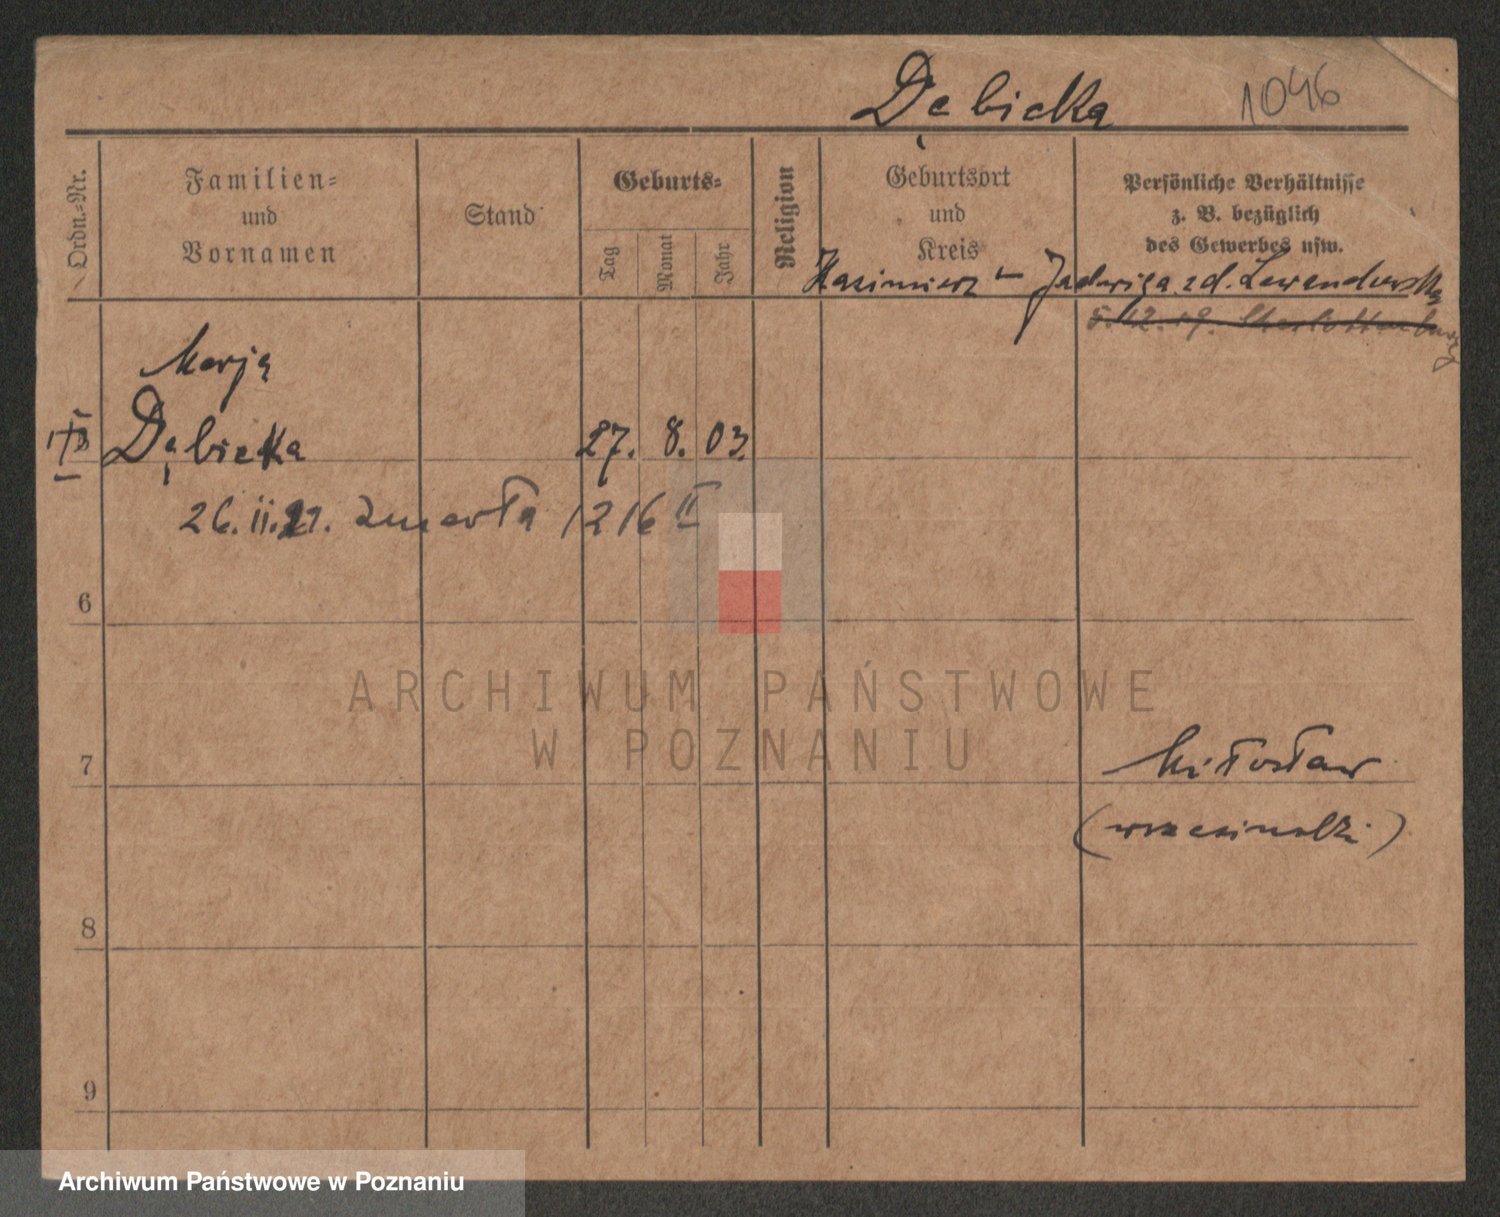 Dębicka 1046
Ordn.-Nr.
Familien-
und
Vornamen
Stand
Geburts-
Tag
Monat
Jahr
Religion
Geburtsort
und
Kreis
Persönliche Verhältnisse
z. B. bezüglich
des Gewerbes usw.
Kazimierz – Jadwiga zd. Lewandowska
5.12.19. Charlottenburg
Marja
Dębicka 27. 8. 03.
26.II.21. zmarła 1216 II
6
7
8
9
Miłosław
(wrzesiński)
ARCHIWUM PAŃSTWOWE
W POZNANIU
Archiwum Państwowe w Poznaniu